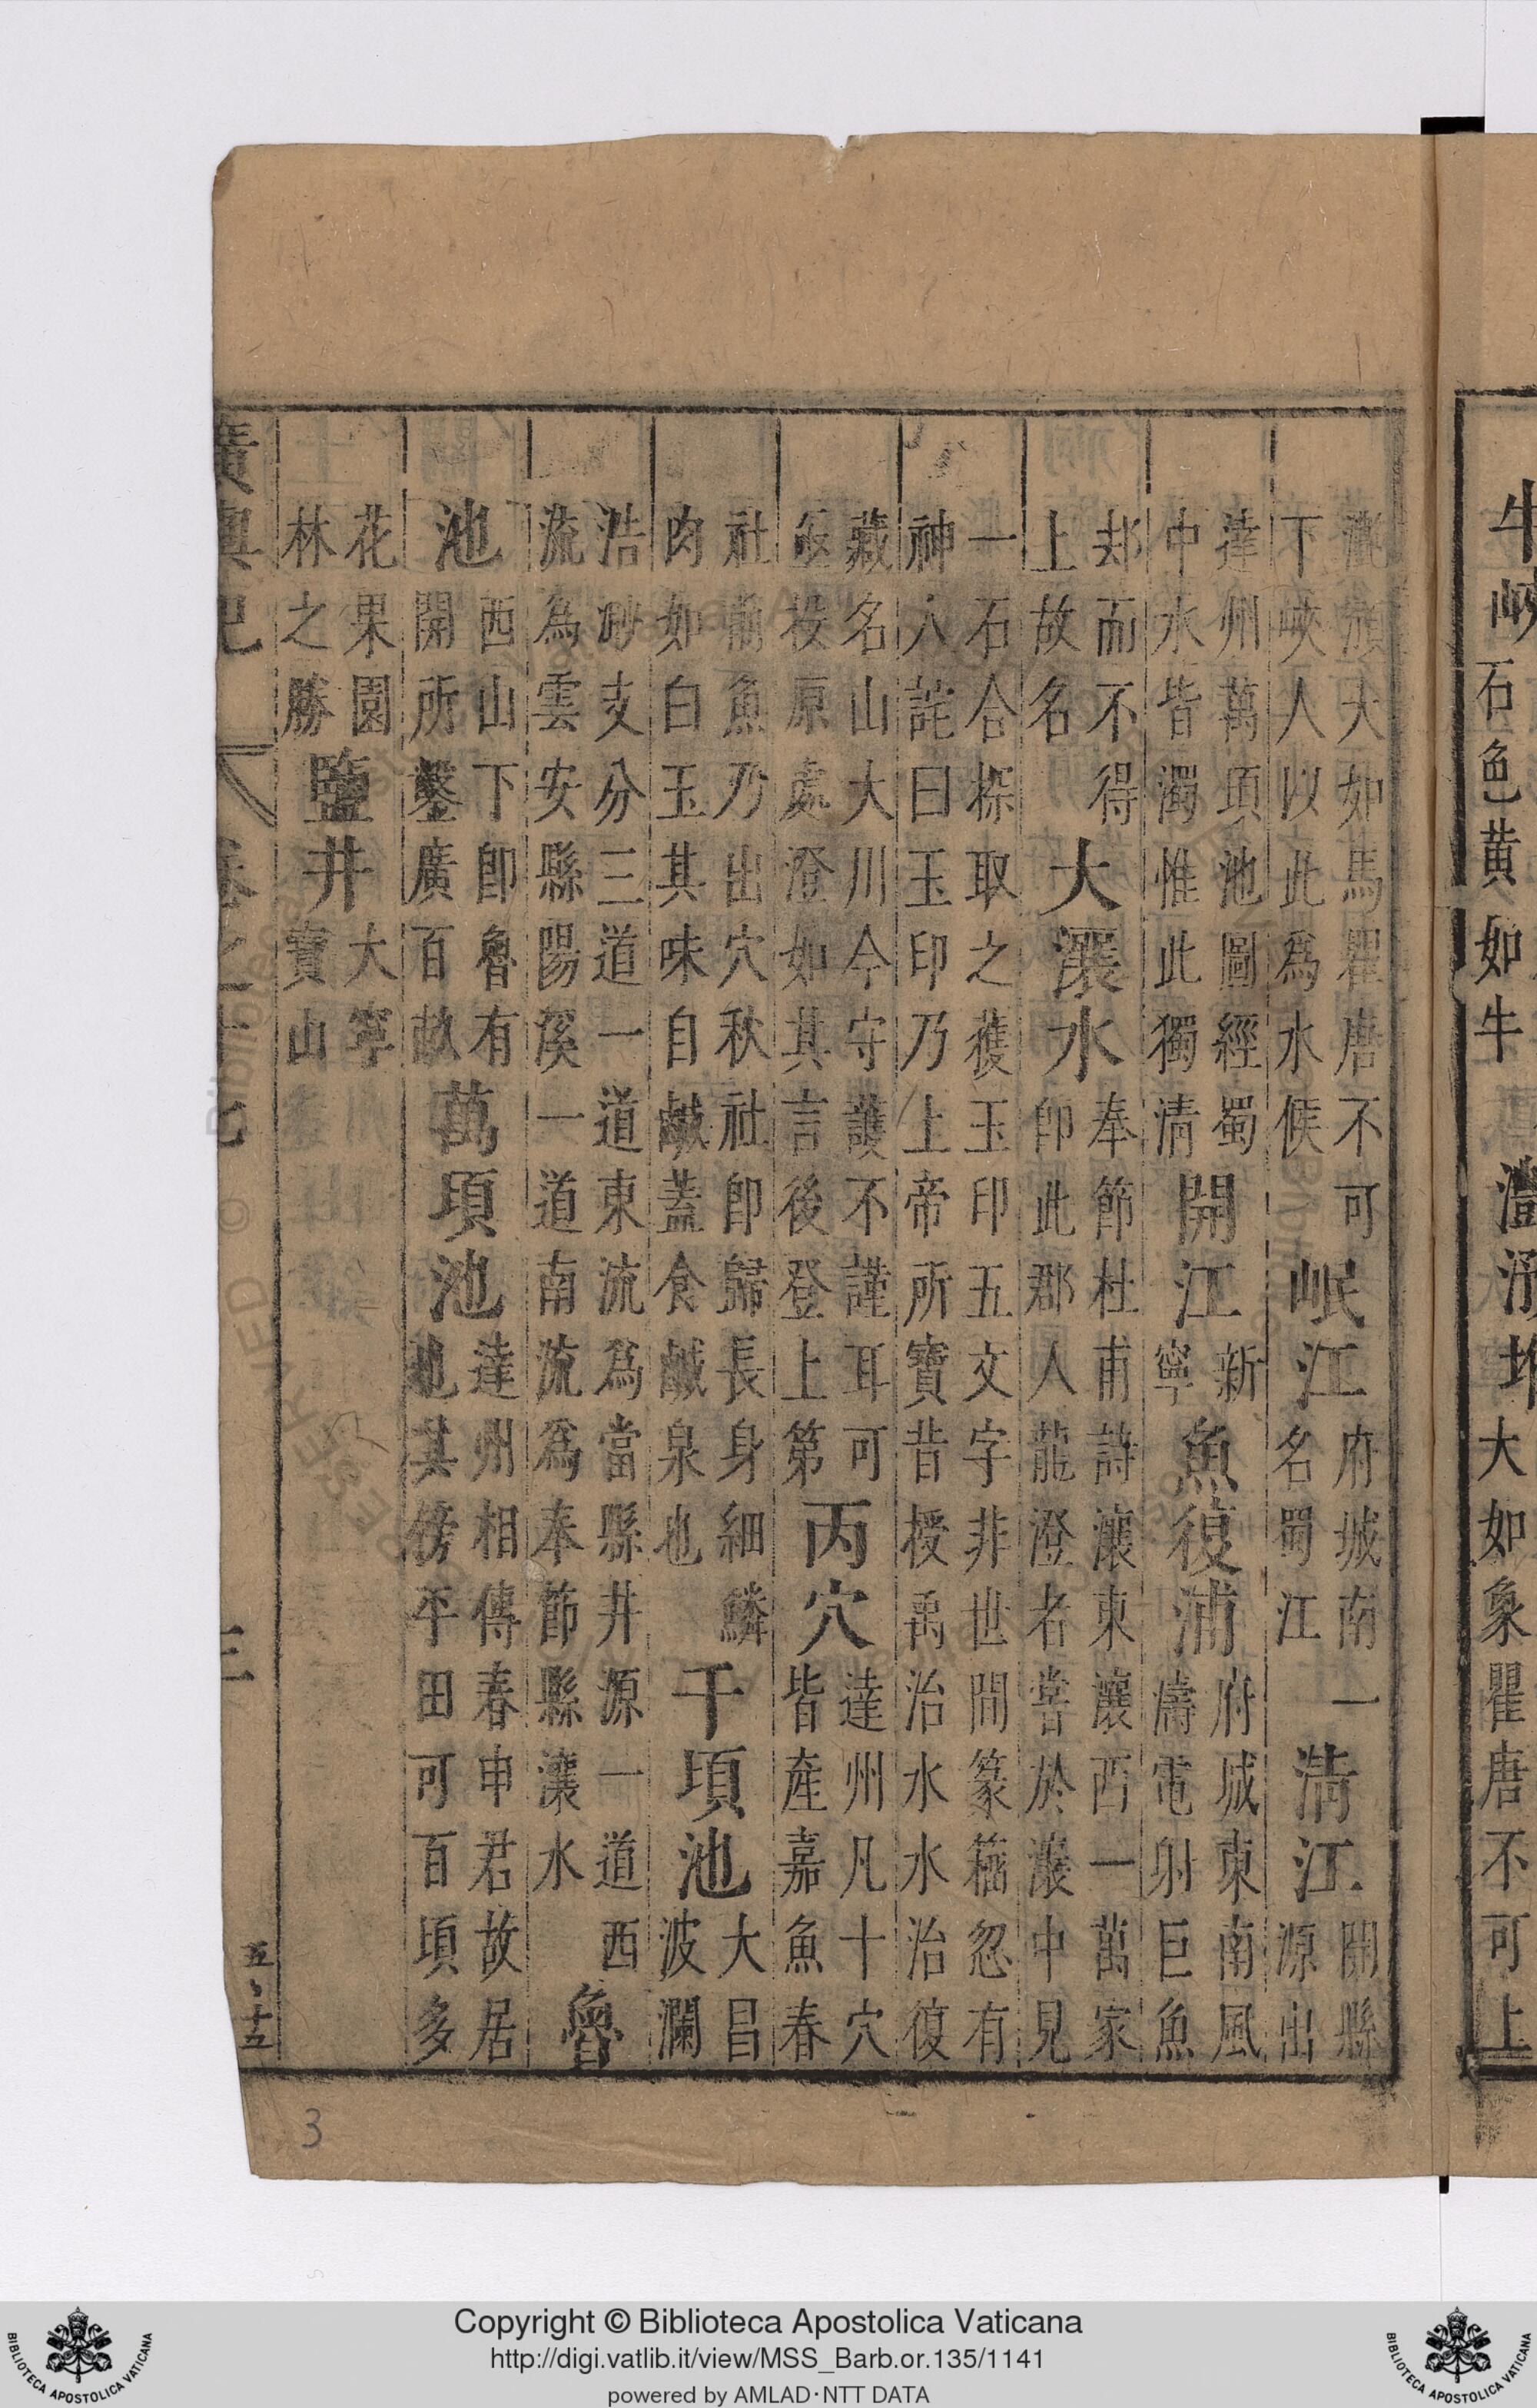 牛峽
石色黄如牛
灩澦堆
大如象瞿唐不可上
灩澦大如馬瞿唐不可
下峽人以此爲水候
岷江
府城南一
名蜀江
清江
開縣
源出
達州萬頃池圖經蜀
中水皆濁惟此獨清
開江
新
寧
魚復浦
府城東南風
濤電射巨魚
却而不得
上故名
大瀼水
奉節杜甫詩瀼東瀼西一萬家
即此郡人龍澄者嘗於瀼中見
一石合探取之獲玉印五文字非世間篆籀忽有
神人詫曰玉印乃上帝所寶昔授禹治水水治復
藏名山大川今守護不謹耳可
亟投原處澄如其言後登上第
丙穴
達州凡十穴
皆産嘉魚春
社前魚乃出穴秋社即歸長身細鱗
肉如白玉其味自鹹蓋食鹹泉也
千頃池
大昌
波瀾
浩渺支分三道一道東流爲當縣井源一道西
流為雲安縣陽溪一道南流爲奉節縣瀼水
魯
池
西山下即魯有
開所鑿廣百畝
萬頃池
達州相傳春申君故居
也其傍平田可百頃多
花果園
林之勝
鹽井
大寧
寶山
廣輿記 卷之十七 三
五、十五
3
Copyright © Biblioteca Apostolica Vaticana
http://digi.vatlib.it/view/MSS_Barb.or.135/1141
powered by AMLAD·NTT DATA
BIBLIOTECA APOSTOLICA VATICANA
BIBLIOTECA APOSTOLICA VATICANA